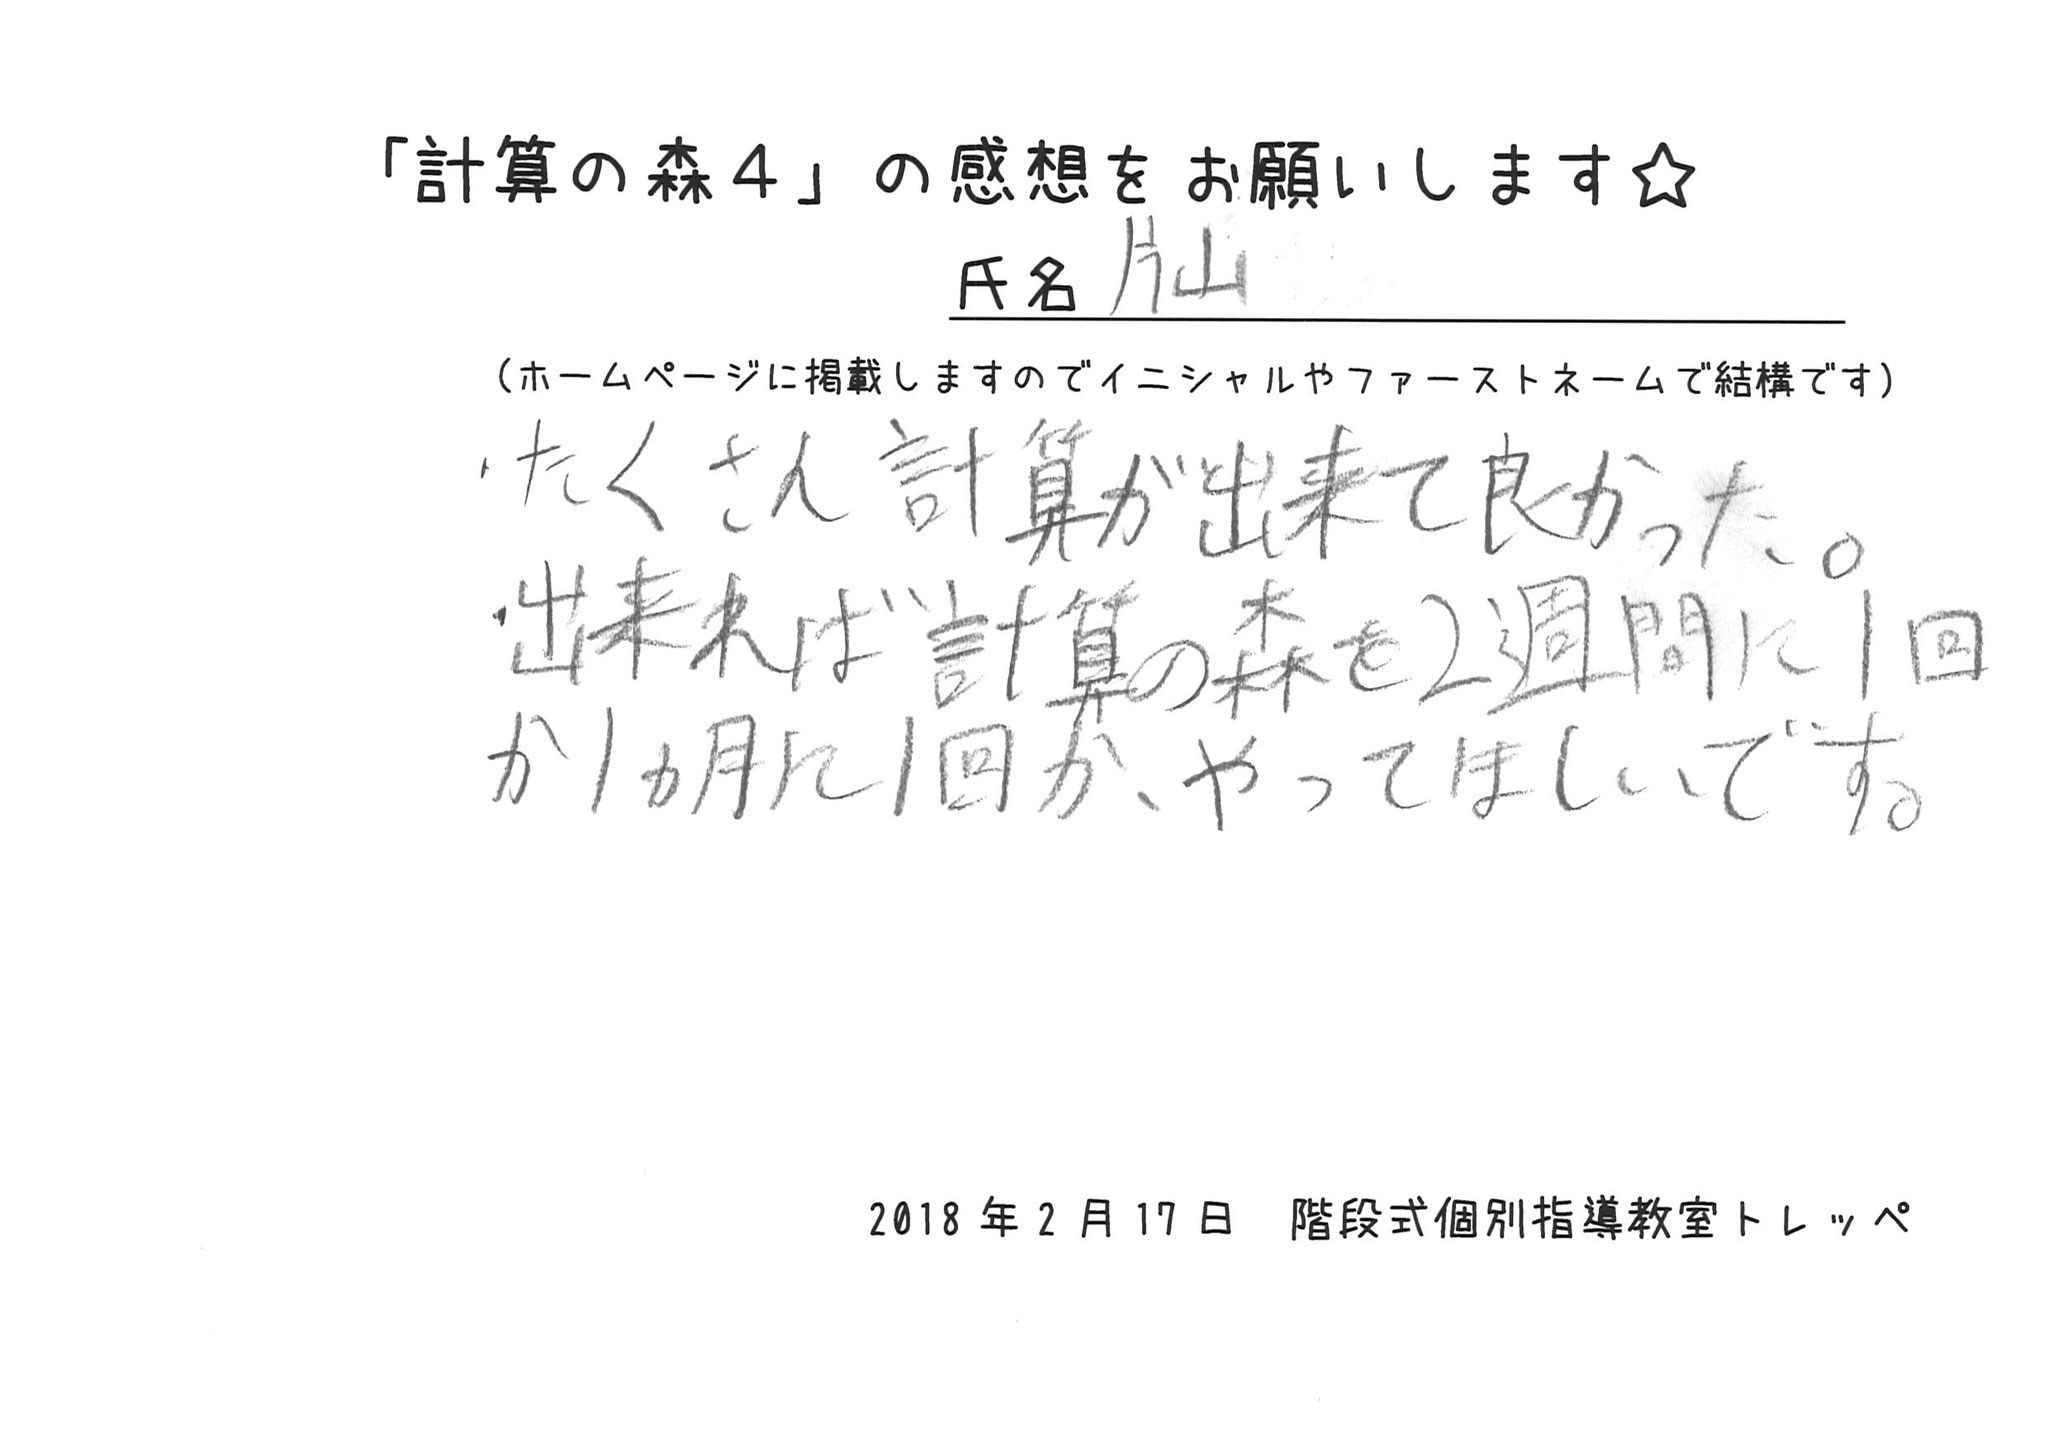 「計算の森４」の感想をお願いします☆
氏名 片山
（ホームページに掲載しますのでイニシャルやファーストネームで結構です）
・たくさん計算が出来て良かった。
・出来れば計算の森を2週間に1回
か1ヵ月に1回か、やってほしいです。
2018年2月17日　階段式個別指導教室トレッペ